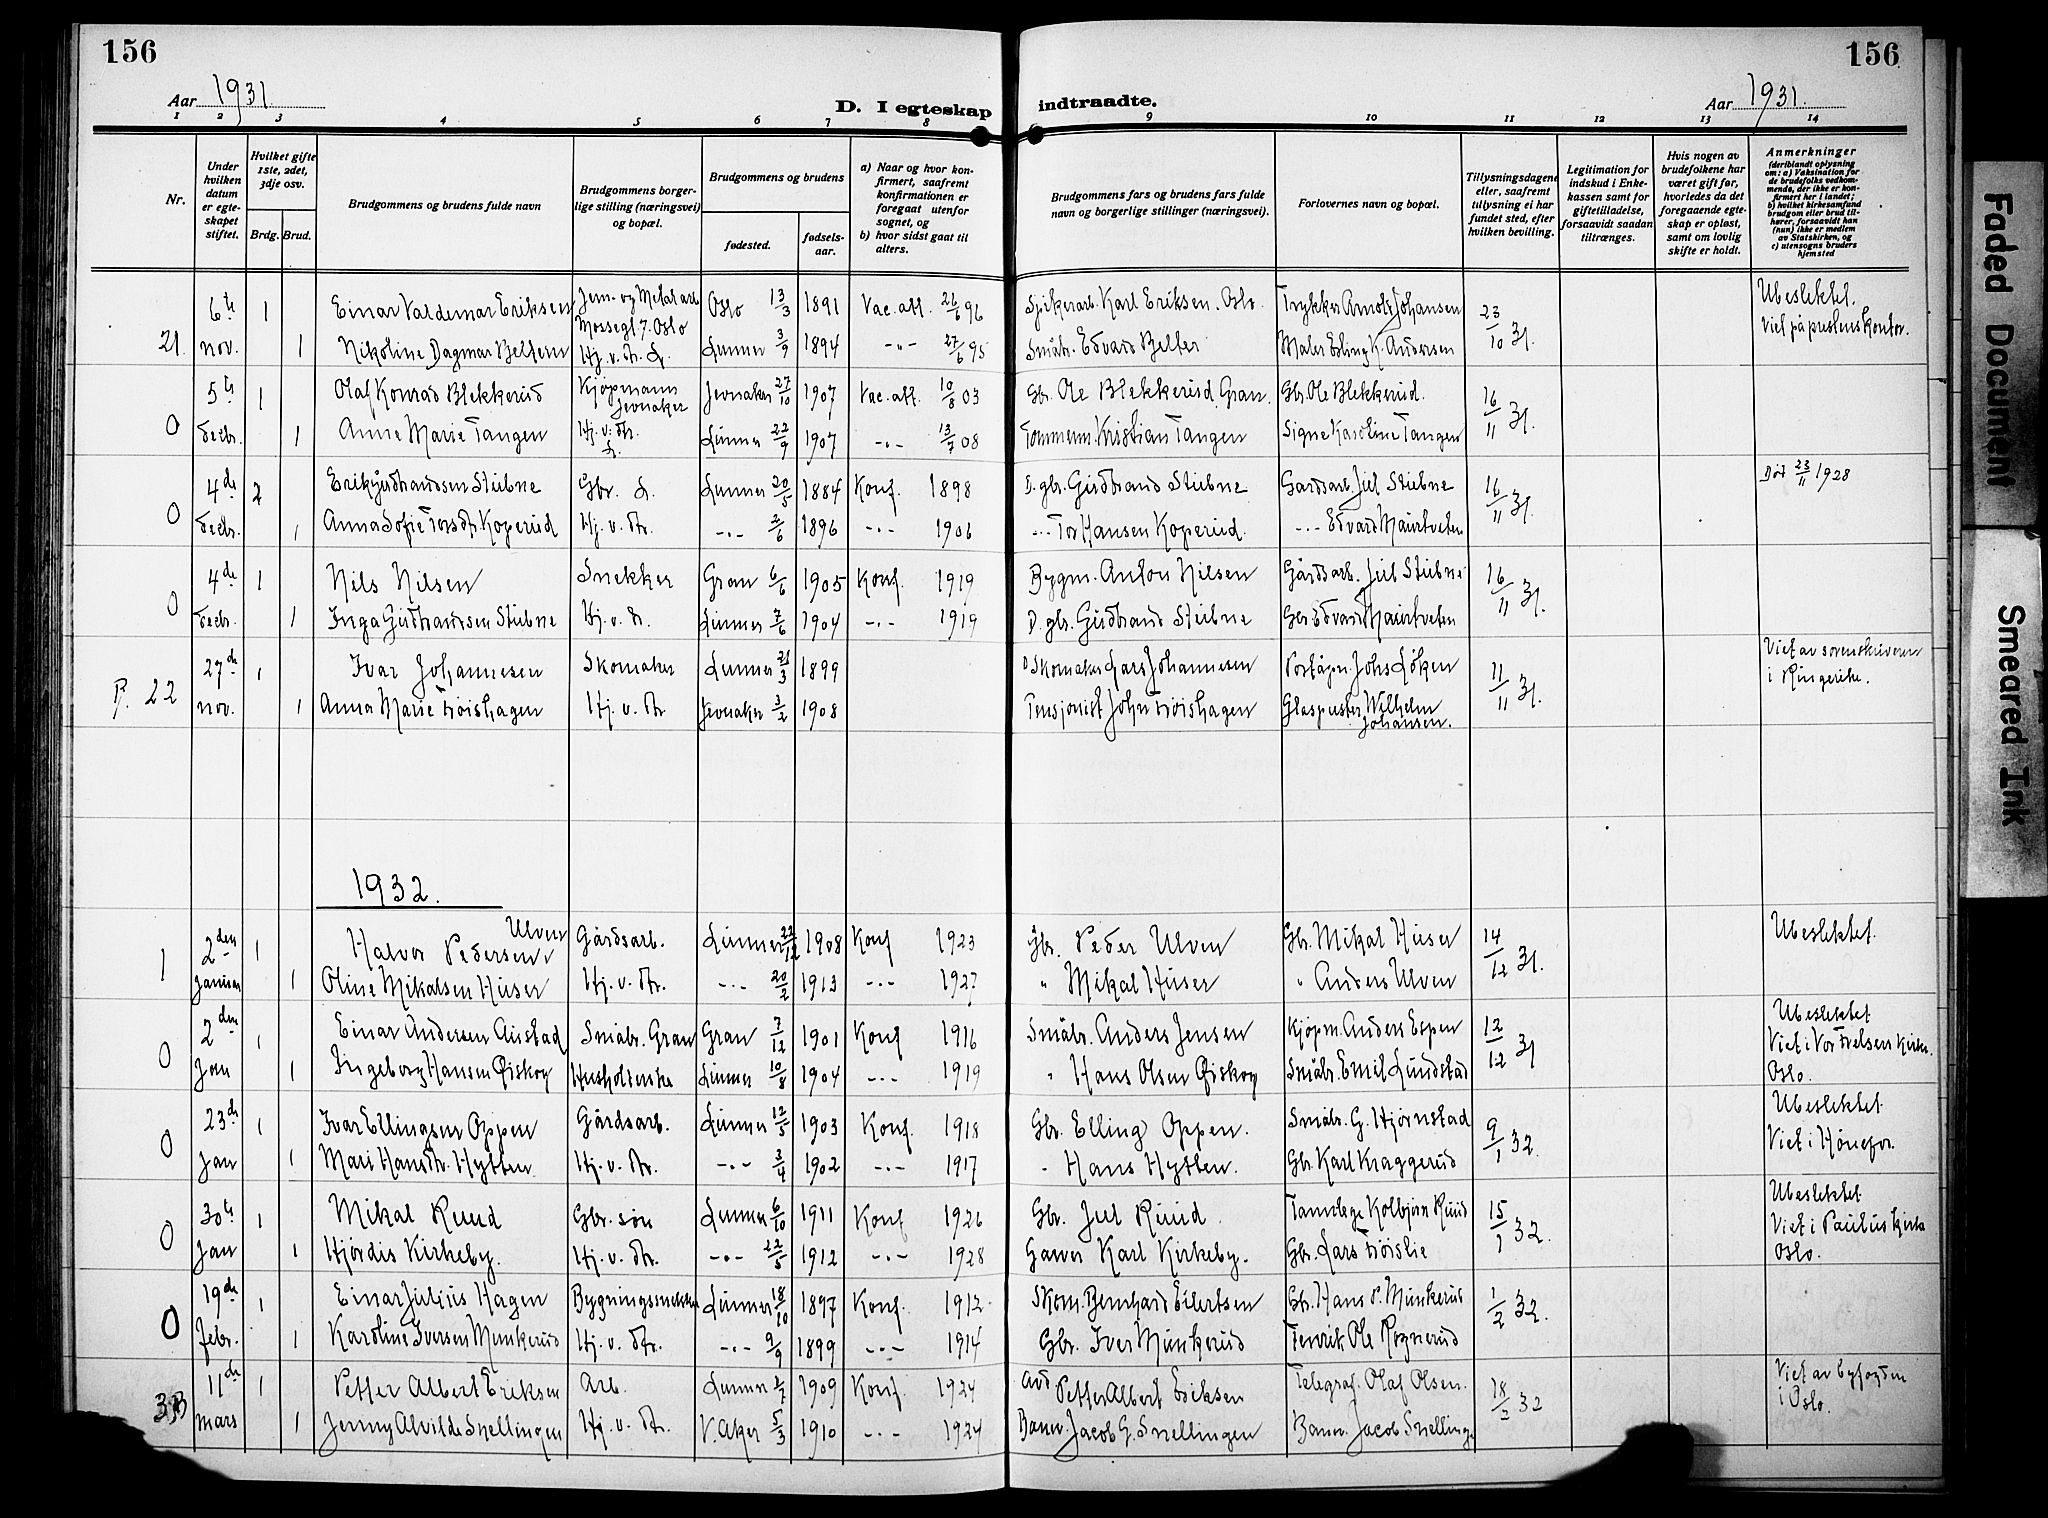 156
156
Aar 1931.
D. I egteskap indtraadte.
Aar 1931.
1 2 3 4 5 6 7 8 9 10 11 12 13 14
Nr.
Under hvilken datum er egteskapet stiftet.
Hvilket gifte 1ste, 2det, 3dje osv.
Brdg. Brud.
Brudgommens og brudens fulde navn
Brudgommens borgerlige stilling (næringsvei) og bopæl.
Brudgommens og brudens
fødested.
fødselsaar.
a) Naar og hvor konfirmert, saafremt konfirmationen er foregaat utenfor sognet, og
b) hvor sidst gaat til alters.
Brudgommens fars og brudens fars fulde navn og borgerlige stillinger (næringsvei).
Forlovernes navn og bopæl.
Tillysningsdagene eller, saafremt tillysning ei har fundet sted, efter hvilken bevilling.
Legitimation for indskud i Enkekassen samt for giftetilladelse, forsaavidt saadan tiltrænges.
Hvis nogen av brudefolkene har været gift før, hvorledes da det foregaaende egteskap er opløst, samt om lovlig skifte er holdt.
Anmerkninger (deriblandt oplysning om: a) Vaksination for de brudefolks vedkommende, der ikke er konfirmert her i landet; b) hvilket kirkesamfund brudgom eller brud tilhører, forsaavidt han (hun) ikke er medlem av Statskirken, og c) utensogns bruders hjemsted
6te 1 Einar Valdemar Eriksen Jern- og Metalarb Oslo 13/3 1891 Vac. att. 26/6 96 Spikerarb. Karl Eriksen. Oslo. Trykker Arnold Johansen 23/10 31. Ubeslektet.
Mossegt 7. Oslo Viet på prestens kontor.
21. nov. 1 Nikoline Dagmar Belsern Hj. v. Fr. L. Lunner 3/9 1894 -"- 27/6 95 Småbr. Edvard Belser Maler Erling K. Andersen
5te 1 Olaf Konrad Blekkerud Kjøpmann Jevnaker Jevnaker 27/10 1907 Vac. att. 10/8 03 Gbr. Ole Blekkerud, Gran. Gbr. Ole Blekkerud. 16/11 31.
0 decbr. 1 Anne Marie Tangen Hj. v. Fr. L. Lunner 22/9 1907 -"- 13/7 08 Tømmerm. Kristian Tangen Signe Karoline Tangen
4de 2 Erik Gudbrandsen Stubne Gbr. L. Lunner 20/5 1884 Konf. 1898 D. gbr. Gudbrand Stubne Gardsarb. Jul Stubne 16/11 31. Død 23/11 1928
0 decbr. 1 Anna Sofie Torsdtr. Koperud Hj. v. Fr. -"- 3/6 1896 -"- 1906 -"- Tor Hansen Koperud. -"- Edvard Maurtveten
4de 1 Nils Nilsen Snekker Gran 6/6 1905 Konf. 1919 Bygm. Anton Nilsen Gårdsarb. Jul Stubne 16/11 31.
0 decbr. 1 Inga Gudbrandsen Stubne Hj. v. Fr. Lunner 7/6 1904 -"- 1919 D. gbr. Gudbrand Stubne Gbr Edvard Maurtveten
27de 1 Ivar Johannesen Skomaker Lunner 21/3 1899 D Skomaker Lars Johannesen Poståpn. Johs Løken 11/11 31. Viet av sorenskriveren i Ringerike.
B. 22 nov. 1 Anna Marie Frøishagen Hj. v. Fr Jevnaker 3/2 1908 Pensjonist John Frøishagen Glaspuster Wilhelm Johansen.
1932.
2den 1 Halvor Pedersen Ulven Gårdsarb. Lunner 22/12 1908 Konf 1923 Gbr. Peder Ulven Gbr. Mikal Huser 14/12 31. Ubeslektet.
1 Januar 1 Oline Mikalsen Huser Hj. v. Fr. -"- 20/2 1913 -"- 1927 " Mikal Huser " Anders Ulven
2den 1 Einar Andersen Austad Småbr. Gran Gran 3/12 1901 Konf 1916 Småbr. Anders Jensen Kjøpm. Anders Espen 12/12 31 Ubeslektet
Viet i Vor Frelsers Kirke. Oslo.
0 Jan 1 Ingeborg Hansen Øiskog Husholderske Lunner 10/8 1904 -"- 1919 " Hans Olsen Øiskog Småbr. Emil Lundstad
23de 1 Ivar Ellingsen Oppen Gårdsarb. Lunner 12/5 1903 Konf. 1918 Gbr. Elling Oppen. Småbr. G. Hjørnstad 9/1 32. Ubeslektet.
Viet i Hønefos.
0 Jan 1 Mari Hansdtr. Hytten Hj. v. Fr. -"- 3/4 1902 -"- 1917 " Hans Hytten. Gbr Karl Kraggerud
30te 1 Mikal Ruud Gbr. søn Lunner 6/10 1911 Konf 1926 Gbr. Jul Ruud. Tannlege Kolbjørn Ruud 15/1 32. Ubeslektet.
Viet i Paulus Kirke Oslo.
0 Jan 1 Hjördis Kirkeby. Hj. v. Fr. -"- 22/5 1912 -"- 1928 Garver Karl Kirkeby. Gbr. Lars Frøislie
19de 1 Einar Julius Hagen Bygningssnekker Lunner 18/10 1897 Konf. 1912 Skom. Bernhard Eilertsen Gbr. Hans P. Munkerud 1/2 32.
0 febr. 1 Karoline Iversen Munkerud Hj. v. Fr. -"- 9/9 1899 -"- 1914 Gbr. Iver Munkerud Fenrik Ole Rognerud
11de 1 Petter Albert Eriksen Arb. Lunner 2/7 1909 Konf. 1924 Petter Albert Eriksen Telegraf. Olaf Olsen. 18/2 32 Viet av byfogden i Oslo.
mars 1 Jenny Alvilde Snellingen Hj. v. Fr. V. Aker 5/3 1910 -"- 1924 Banev. Jacob G. Snellingen Banev. Jacob Snelling.
Faded Document
Smeared Ink